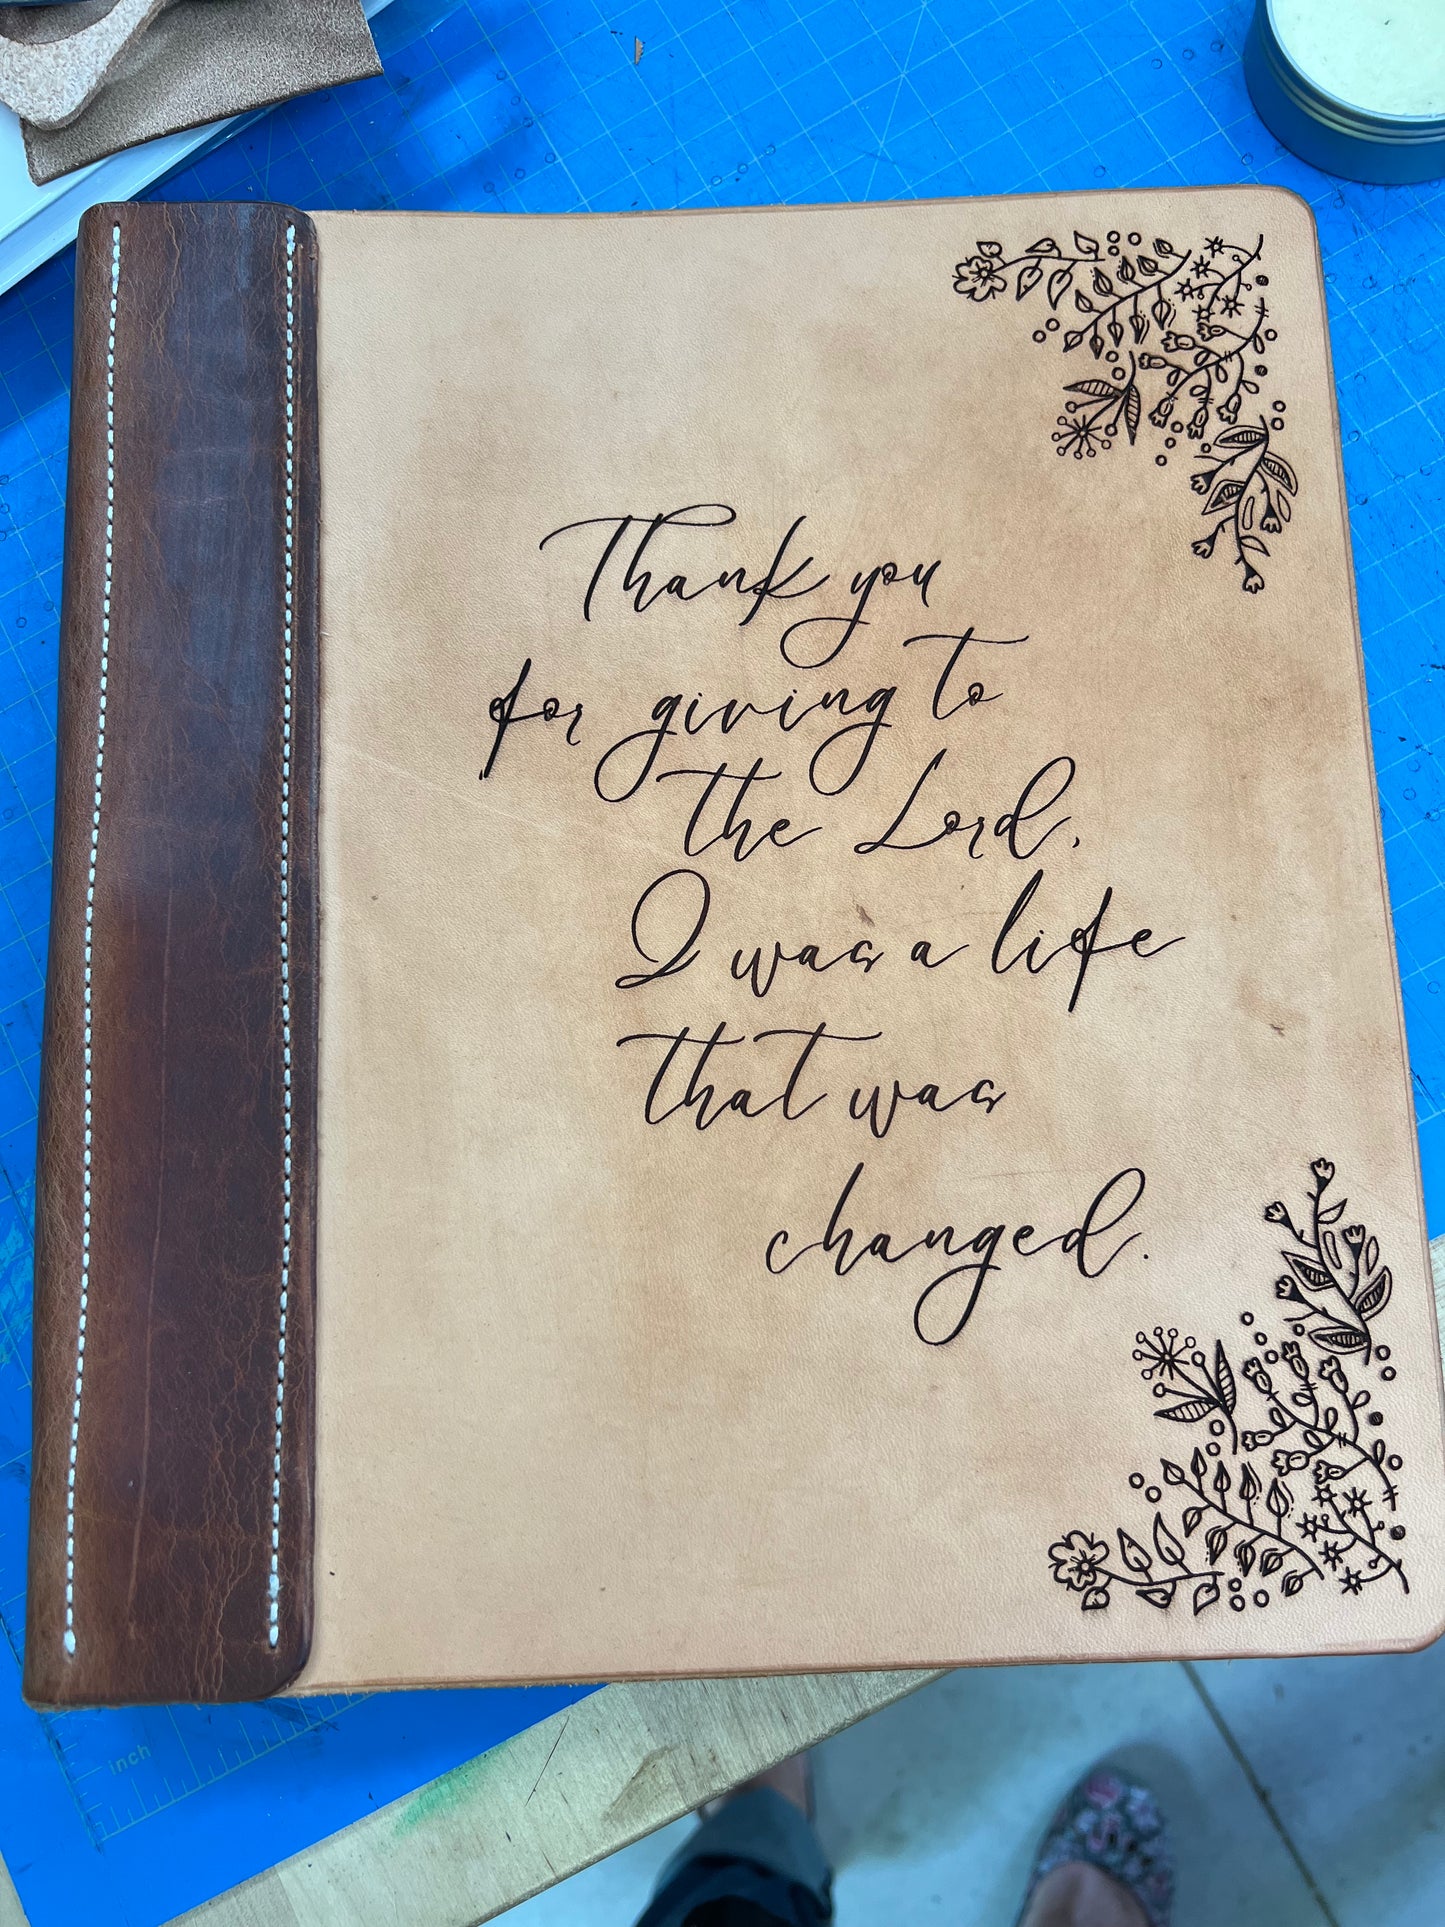 Thank you
for giving to
the Lord,
I was a life
that was
changed.
inch